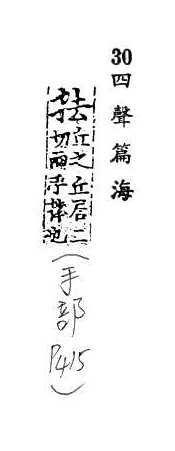 30四聲篇海
抾
丘之丘居二
切兩手捧也
(手部P415)